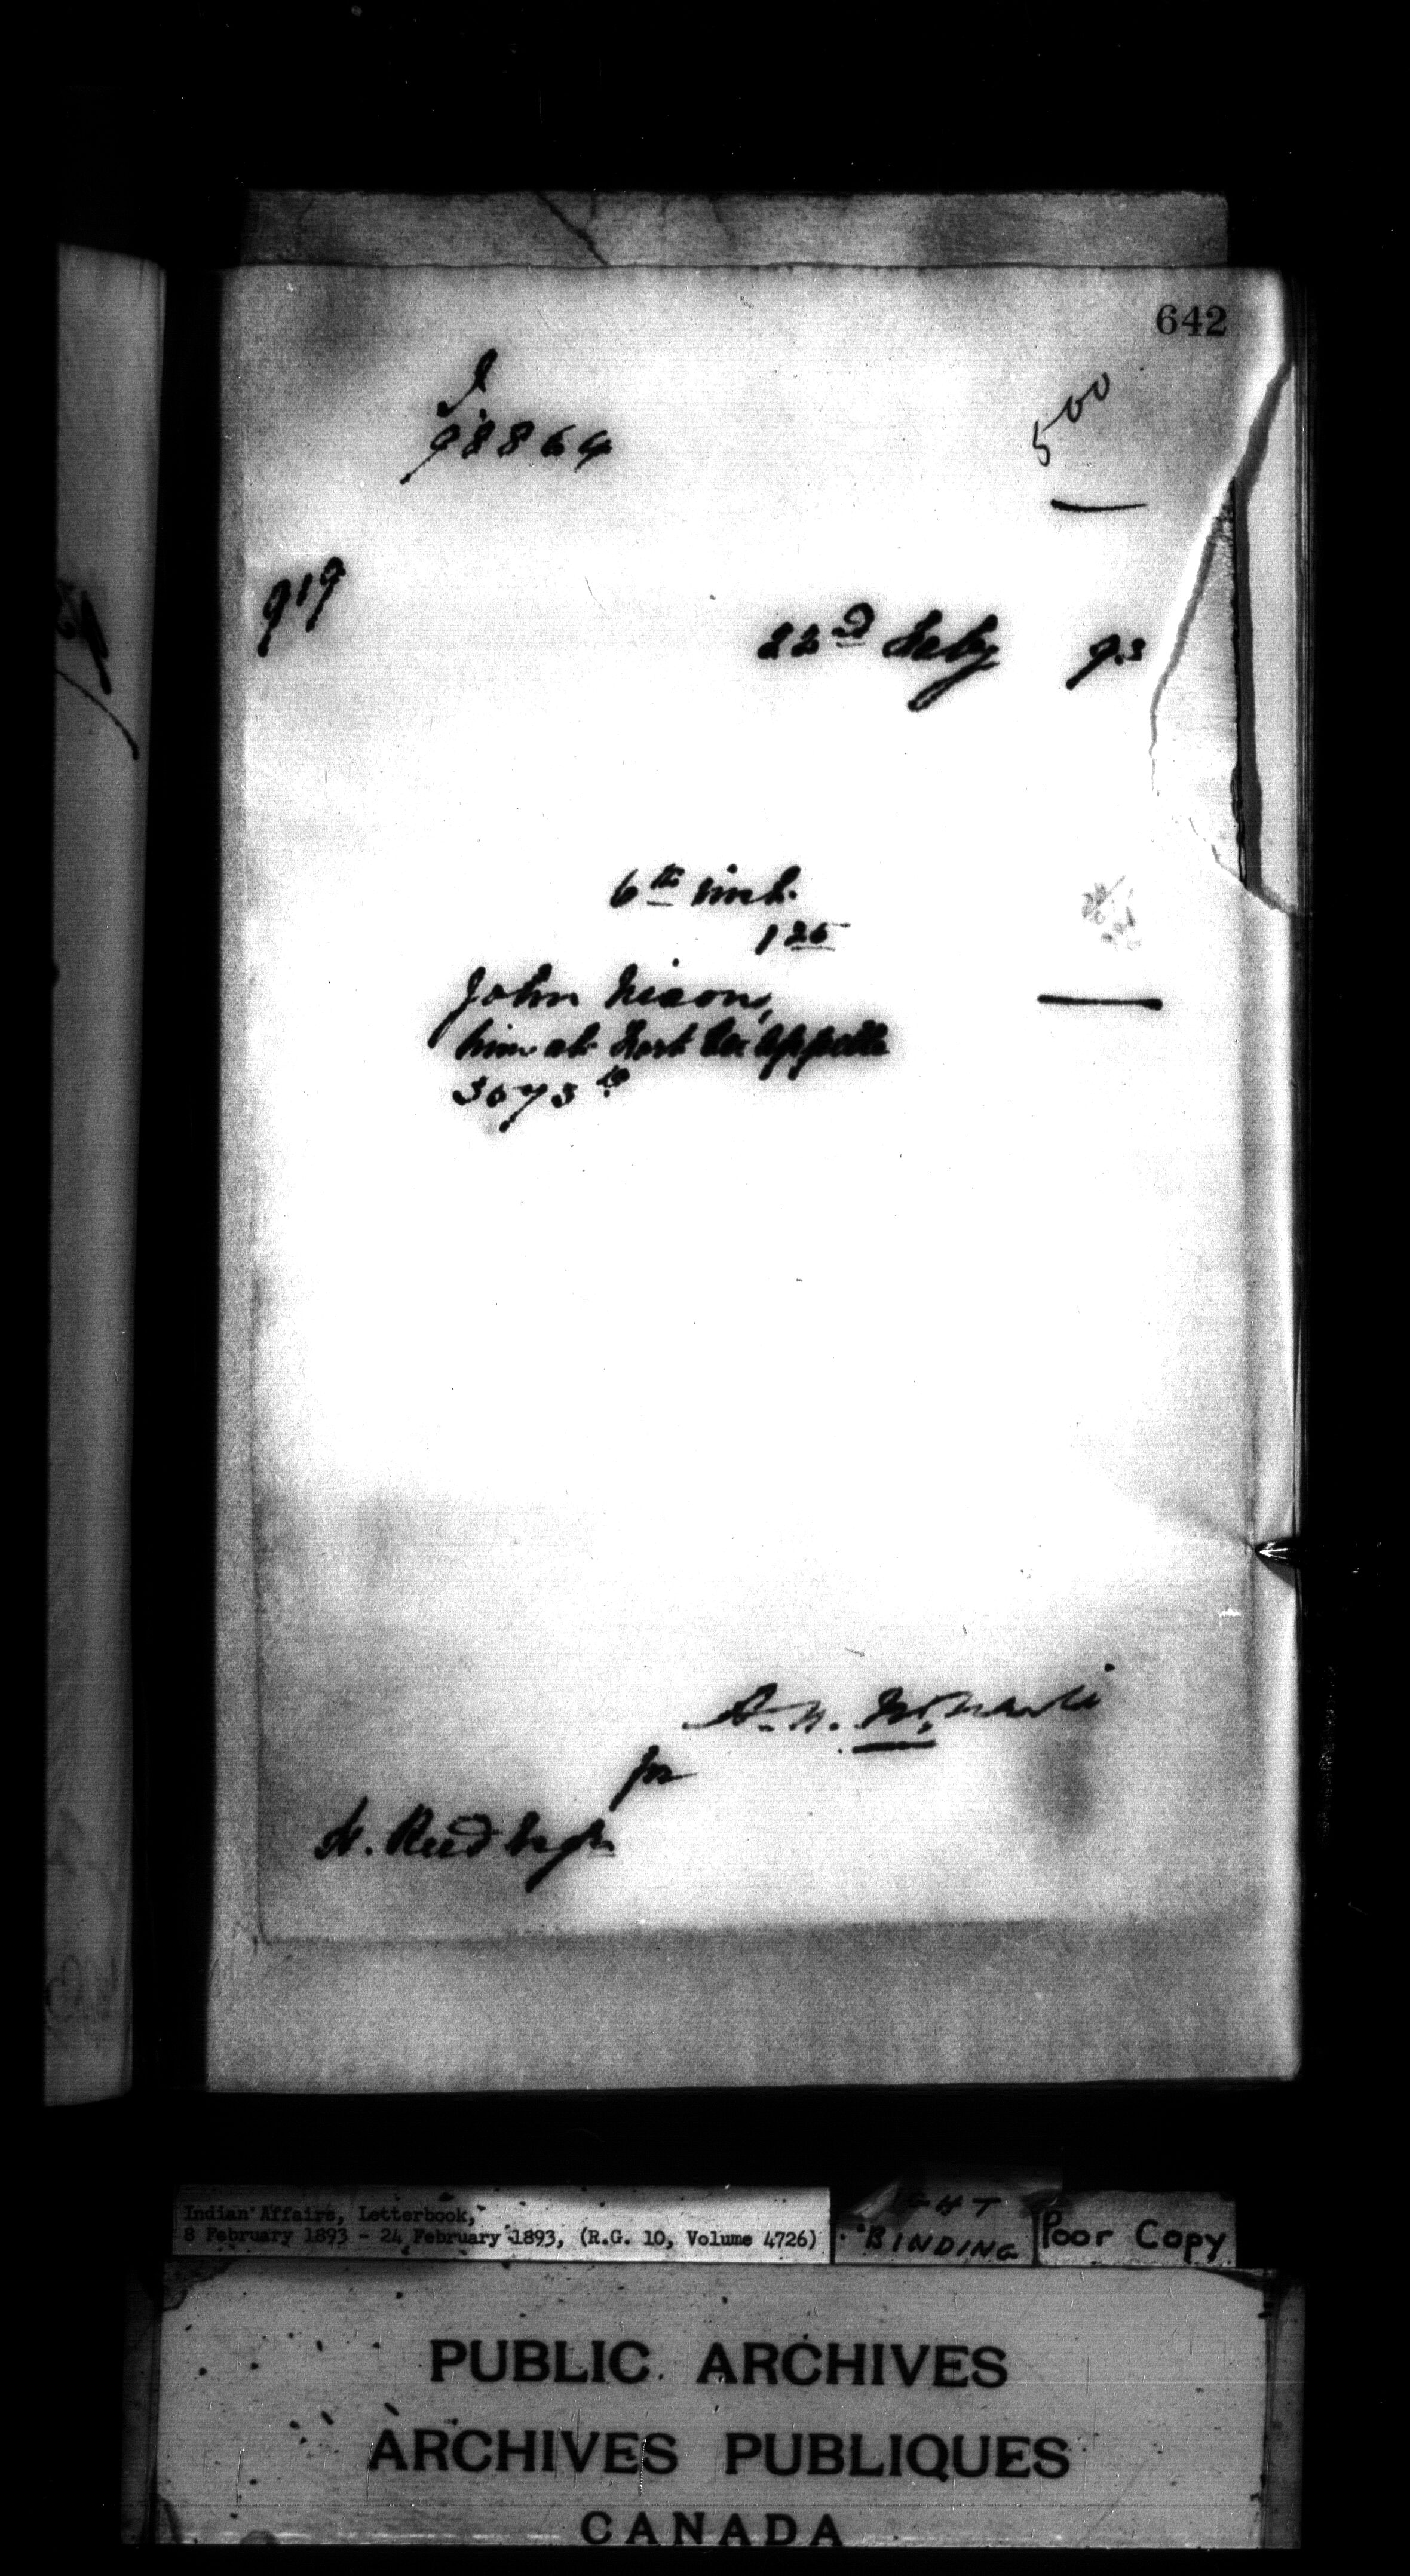 642
5 00
98864
919
22d Feby 93
6th inst.
1 25
John Nixon,
him at Fort Qu'Appelle
for
H. Reed Esqr
Indian Affairs, Letterbook,
8 February 1893 - 24 February 1893, (R.G. 10, Volume 4726)
BINDING
Poor Copy
PUBLIC ARCHIVES
ARCHIVES PUBLIQUES
CANADA